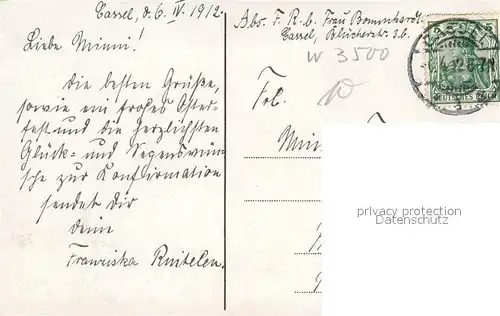 Cassel, d. 6. IV. 1912.
Liebe Minni!
Die besten Grüße,
sowie ein frohes Oster-
fest und die herzlichsten
Glück- und Segenswün-
sche zur Konfirmation
sendet Dir
deine
Franziska
Abs. F. R. b. Frau Bommhardt
Cassel, Blücherstr. 3.b.
W 3500
Frl.
CASSEL
DEUTSCHES
privacy protection
Datenschutz